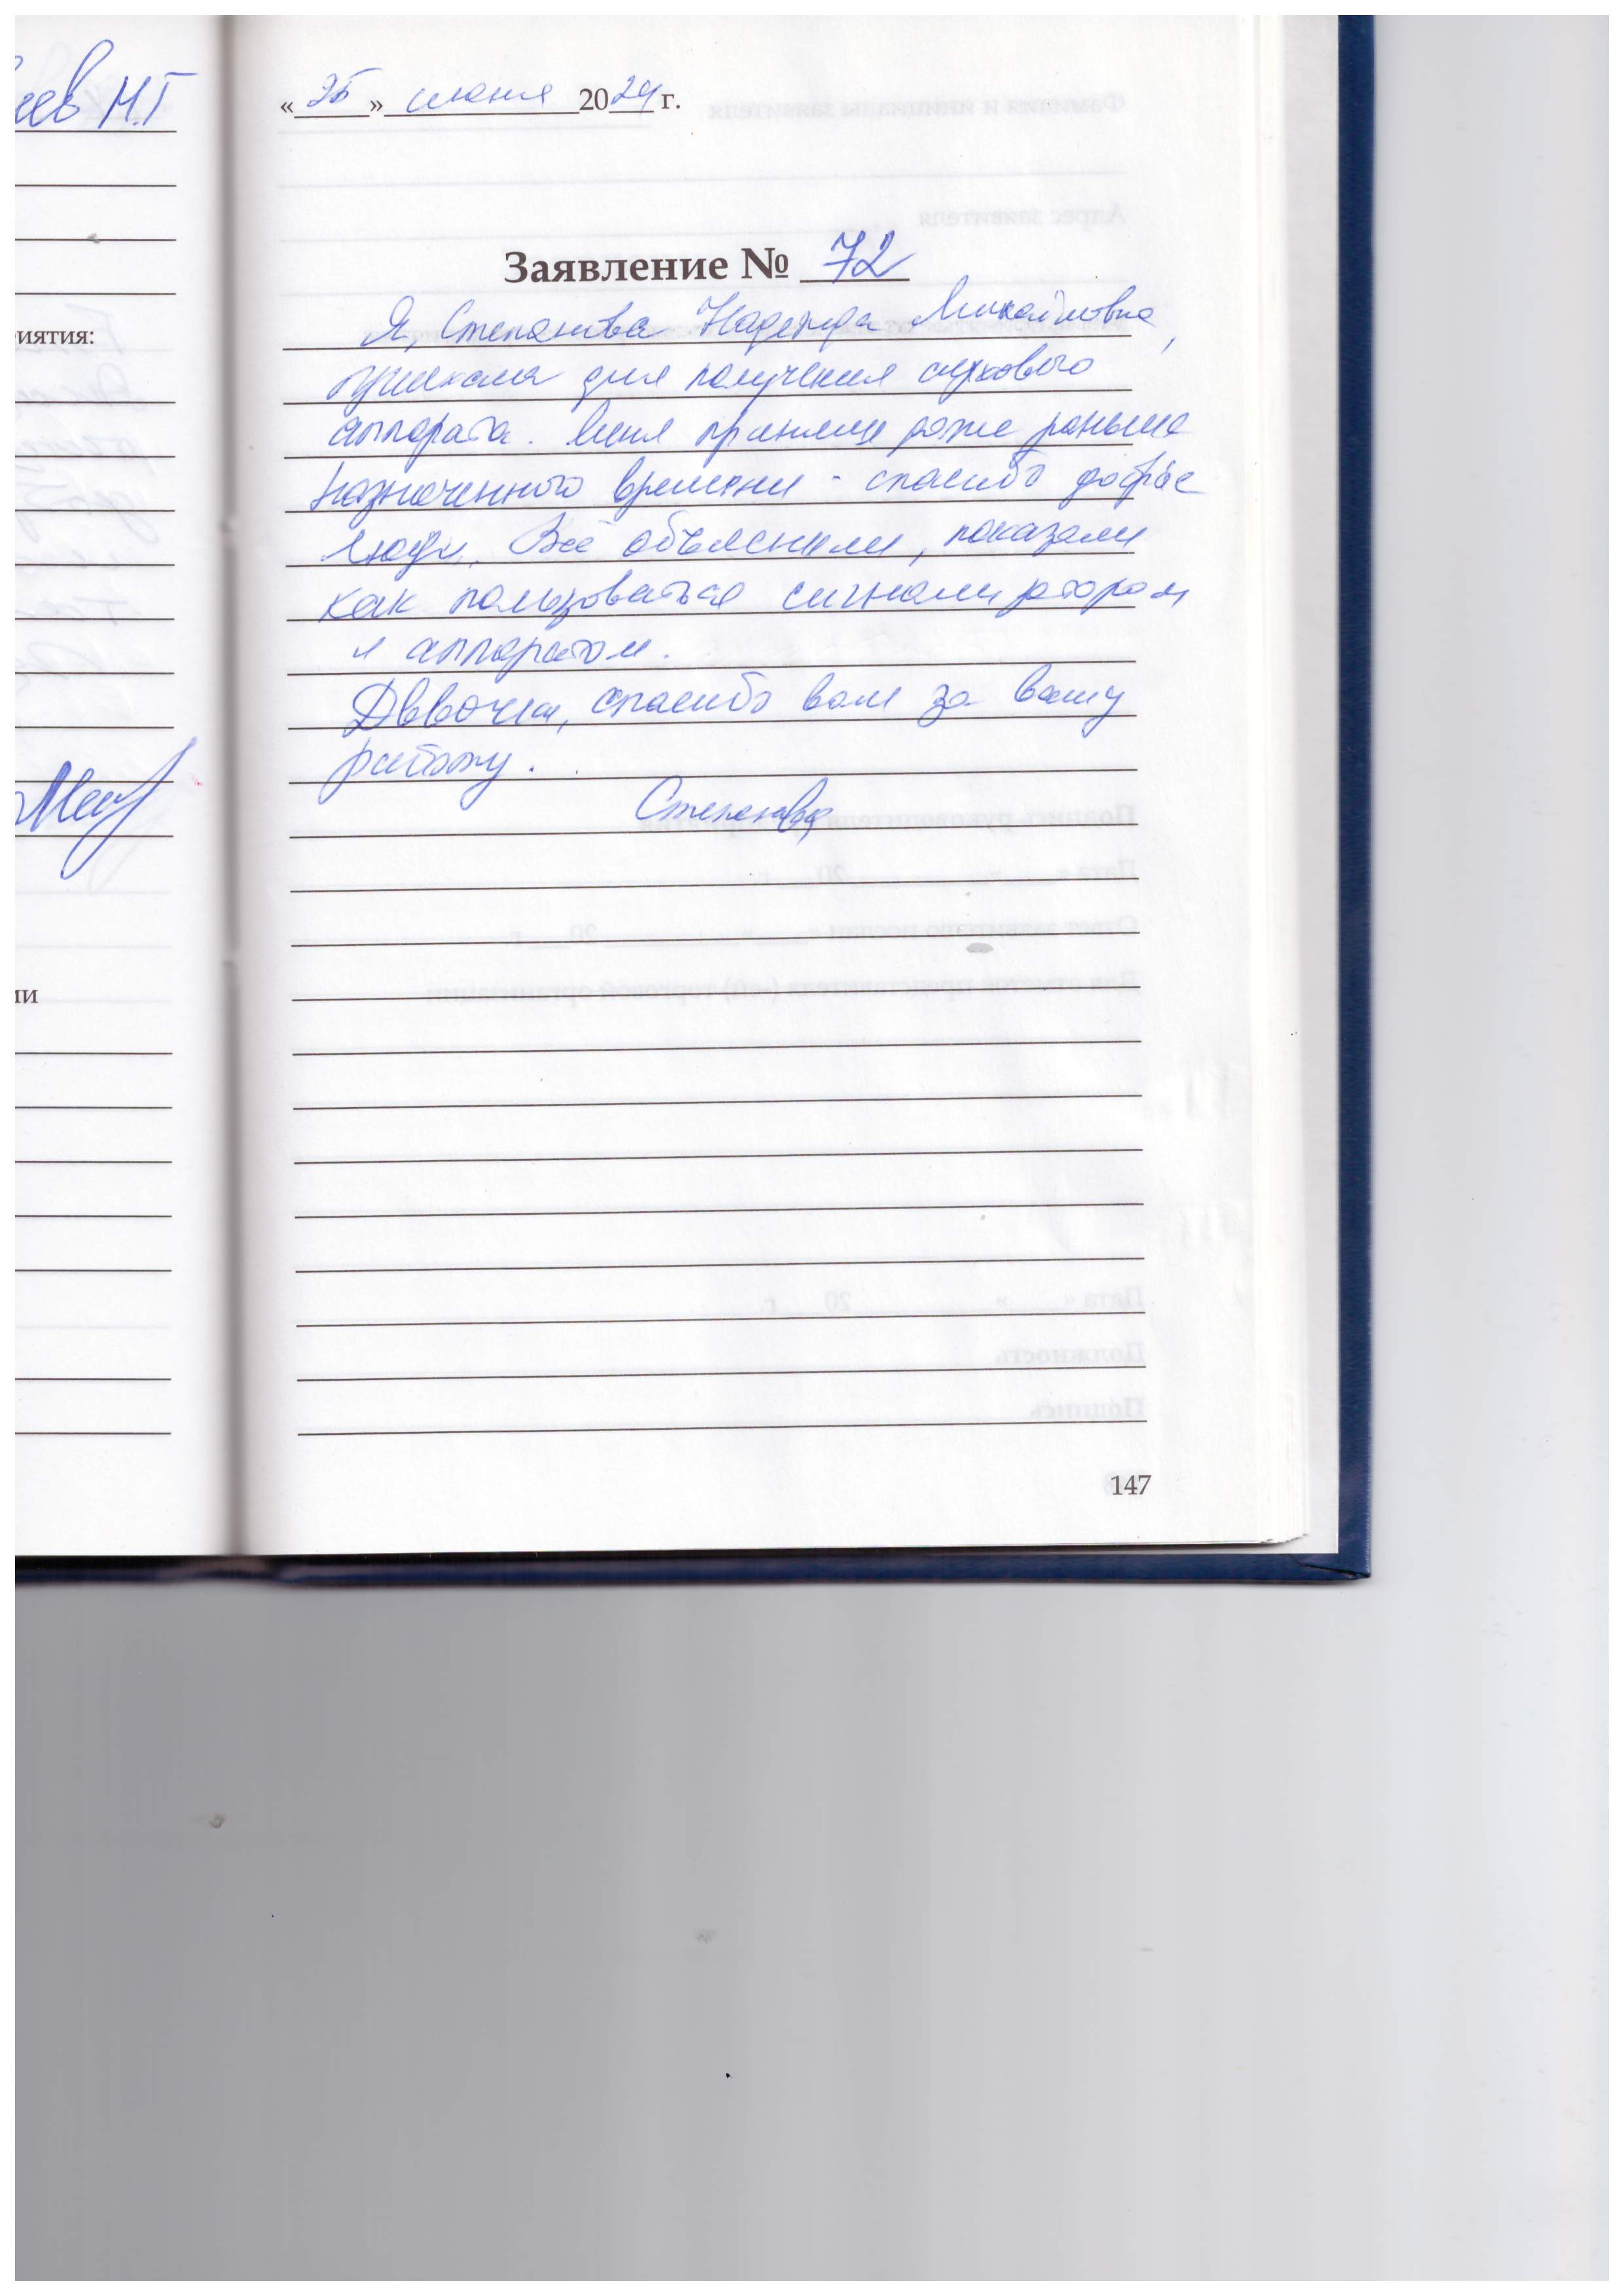 иев М.Г
иятия:
ии
«25» июня 2024 г.
Заявление № 72
Я, Степанова Надежда Михайловна,
приехала для получения слухового
аппарата. Меня приняли даже раньше
назначенного времени - спасибо добрые
люди. Всё объяснили, показали
как пользоваться сигнализатором
и аппаратом.
Девочки, спасибо вам за вашу
работу.
Степанова
147